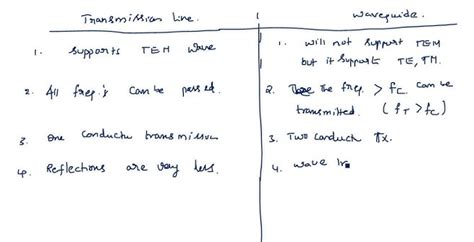 Transmission Line.
Waveguide.
1. Supports TEM Wave
1. Will not support TEM
but it supports TE, TM.
2. All freq.s can be passed.
2. The freq. > fc can be
transmitted. (fT > fc)
3. One conductor transmission
3. Two conduct Tx.
4. Reflections are very less.
4. Wave